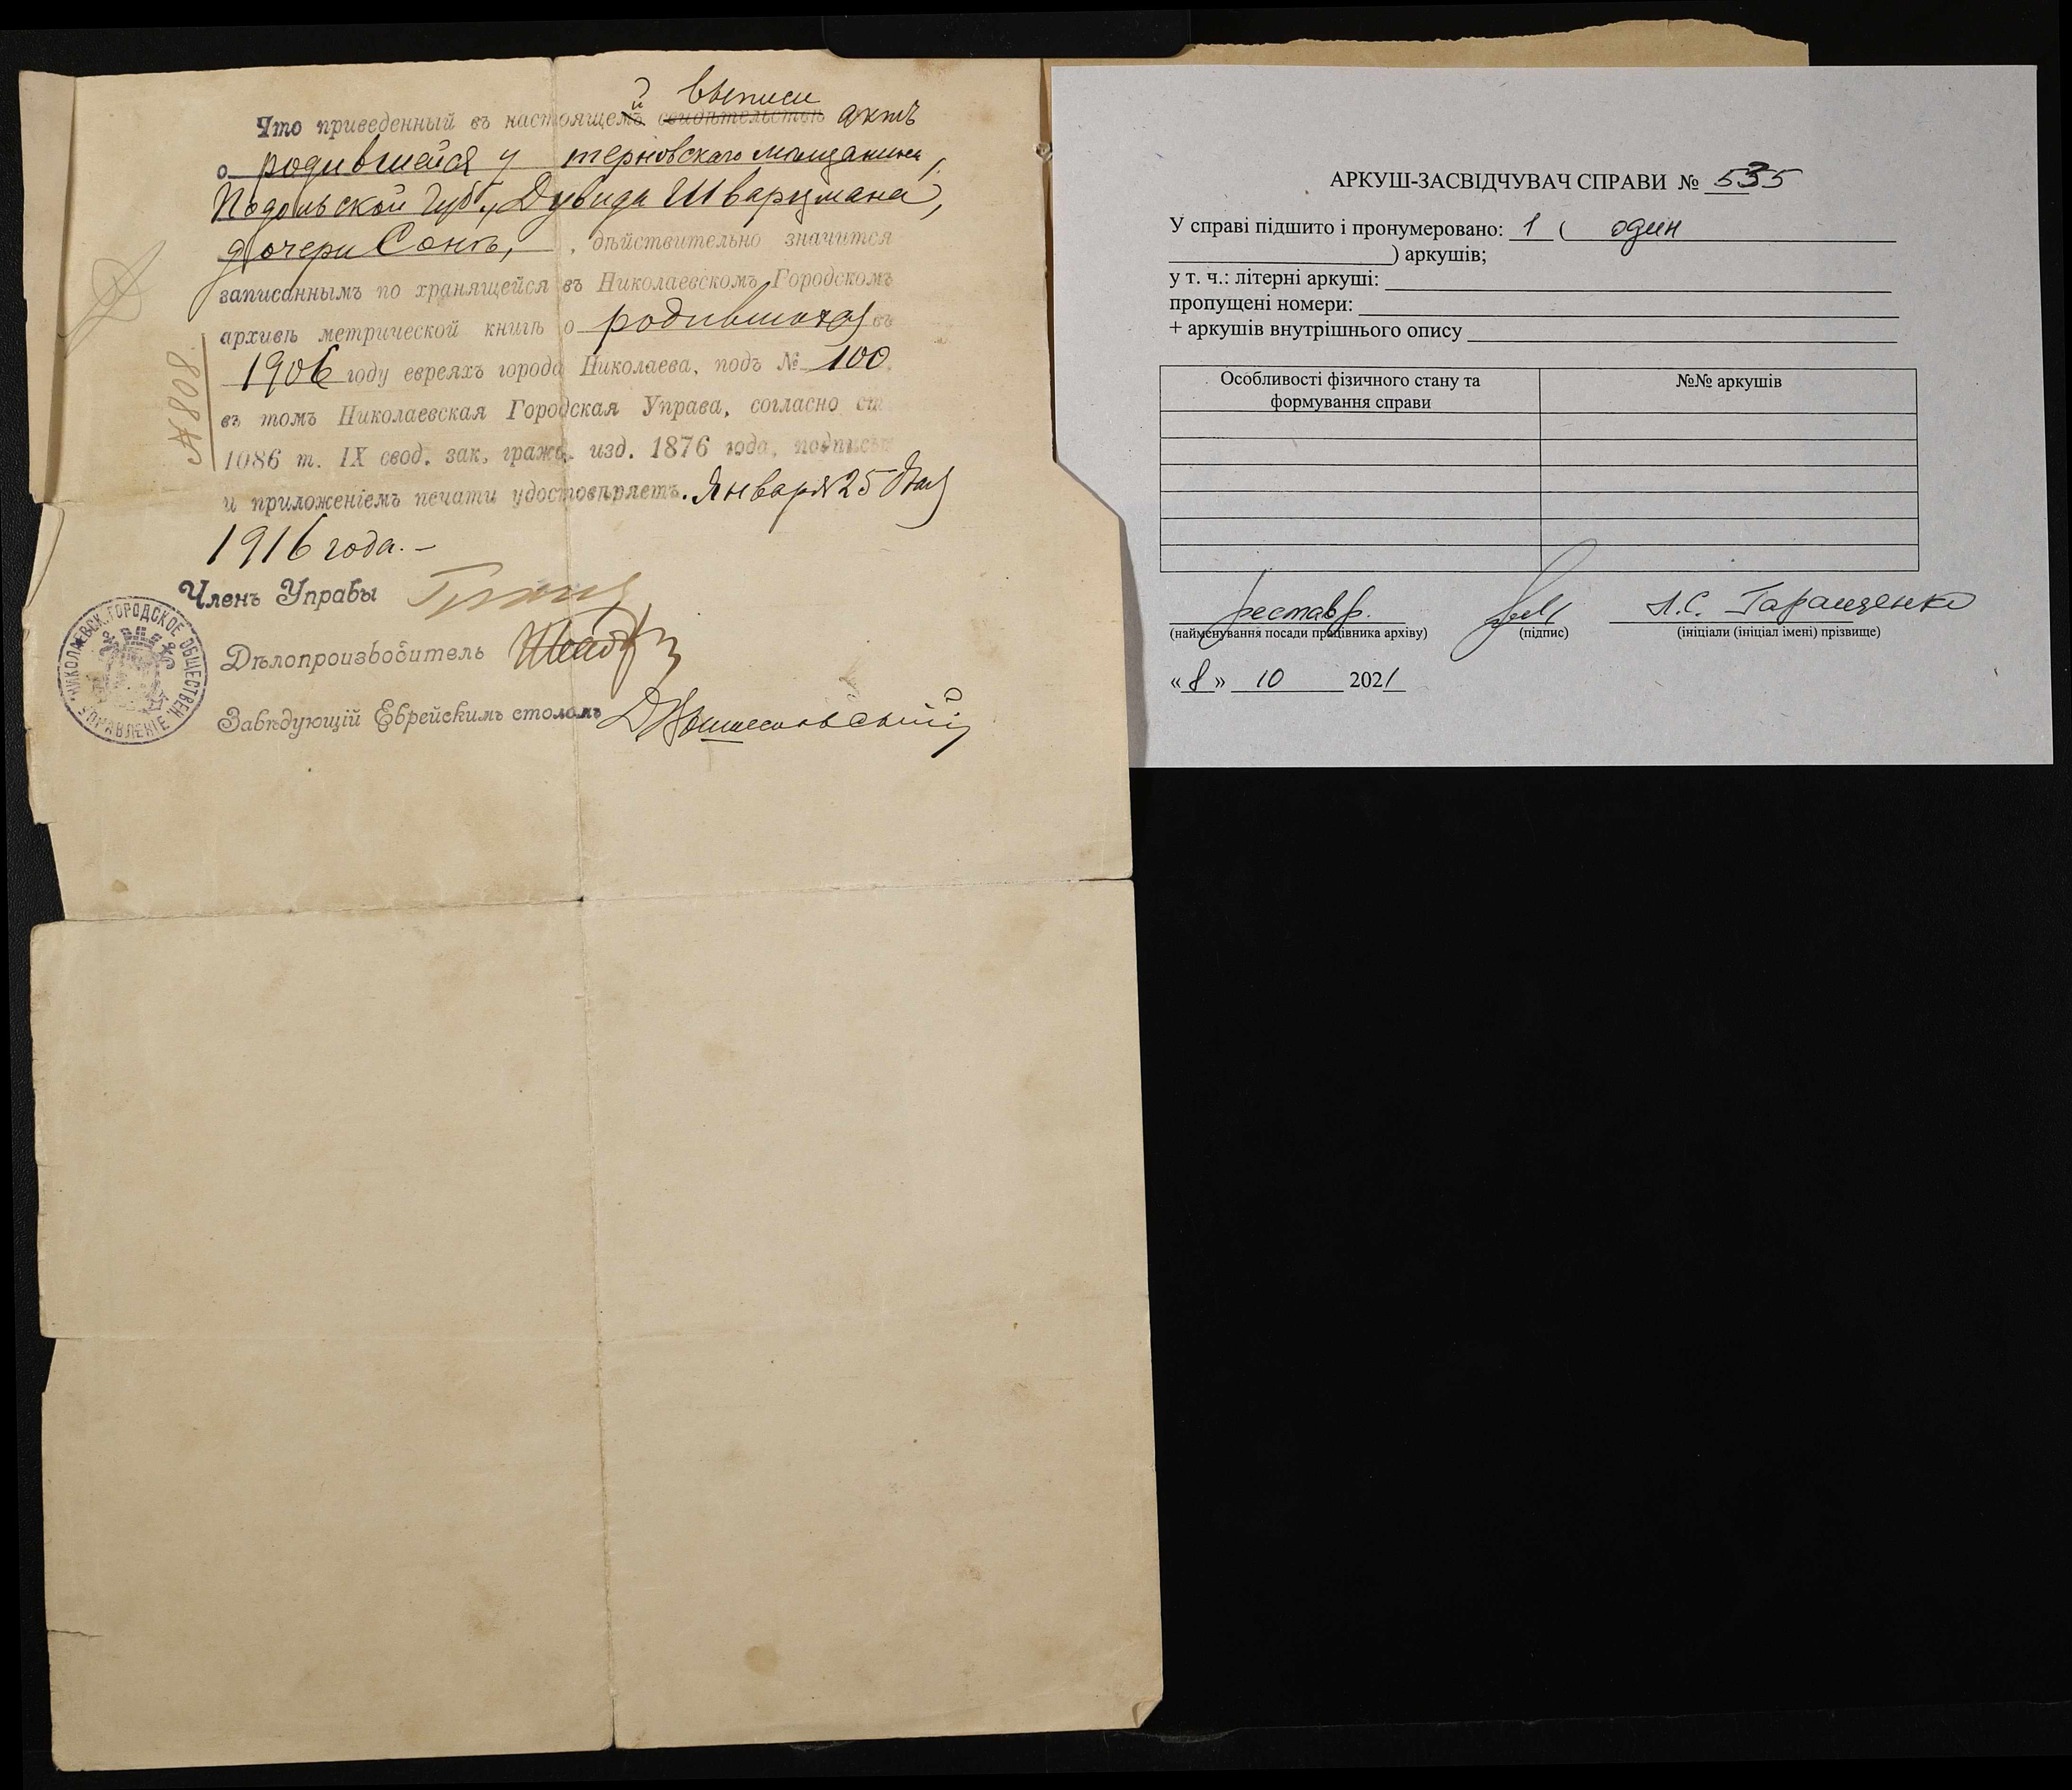 выписи
Что приведенный въ настоящей свидѣтельствѣ актъ
о родившейся у терновскаго мѣщанина,
Подольской губ., Дувида Шварцмана,
дочери Сонѣ, , дѣйствительно значится
записаннымъ по хранящейся въ Николаевскомъ Городскомъ
архивѣ метрической книгѣ о родившихся въ
1906 году евреяхъ города Николаева, подъ № 100,
въ томъ Николаевская Городская Управа, согласно ст.
1086 т. IX свод. зак. гражд. изд. 1876 года, подписью
и приложеніемъ печати удостовѣряетъ. Января 25 дня
1916 года. –
Членъ Управы
Дѣлопроизводитель
Завѣдующій Еврейскимъ столомъ
НИКОЛАЕВСК. ГОРОДСКОЕ ОБЩЕСТВЕН. УПРАВЛЕНІЕ
№ 808
АРКУШ-ЗАСВІДЧУВАЧ СПРАВИ № 535
У справі підшито і пронумеровано: 1 ( один
) аркушів;
у т. ч.: літерні аркуші:
пропущені номери:
+ аркушів внутрішнього опису
Особливості фізичного стану та №№ аркушів
формування справи
реставр. Л.С. Таращенко
(найменування посади працівника архіву) (підпис) (ініціали (ініціал імені) прізвище)
« 8 » 10 2021